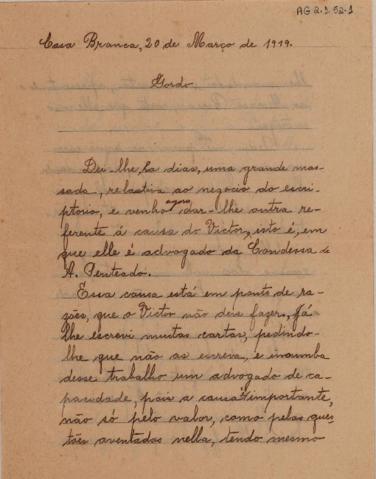 AG 2.1.52-1
Casa Branca, 20 de Março de 1919.
Gordo.
Dei-lhe, ha dias, uma grande mas-
sada, relativa ao negocio do escri-
ptorio, e venho agora dar-lhe outra re-
ferente á causa do Victor, isto é, em
que elle é advogado da Condessa de
A. Penteado.
Essa causa está em ponto de ra-
zões, que o Victor não deve fazer, já
lhe escrevi muitas cartas, pedindo-
lhe que não as escreva, e incumba
desse trabalho um advogado de ca-
pacidade, pois a causa é importante,
não só pelo valor, como pelas ques-
tões aventadas nella, tendo mesmo